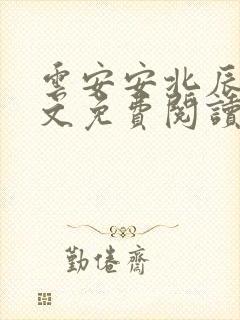 雲安安北辰
文免費閱讀
勤倦齋